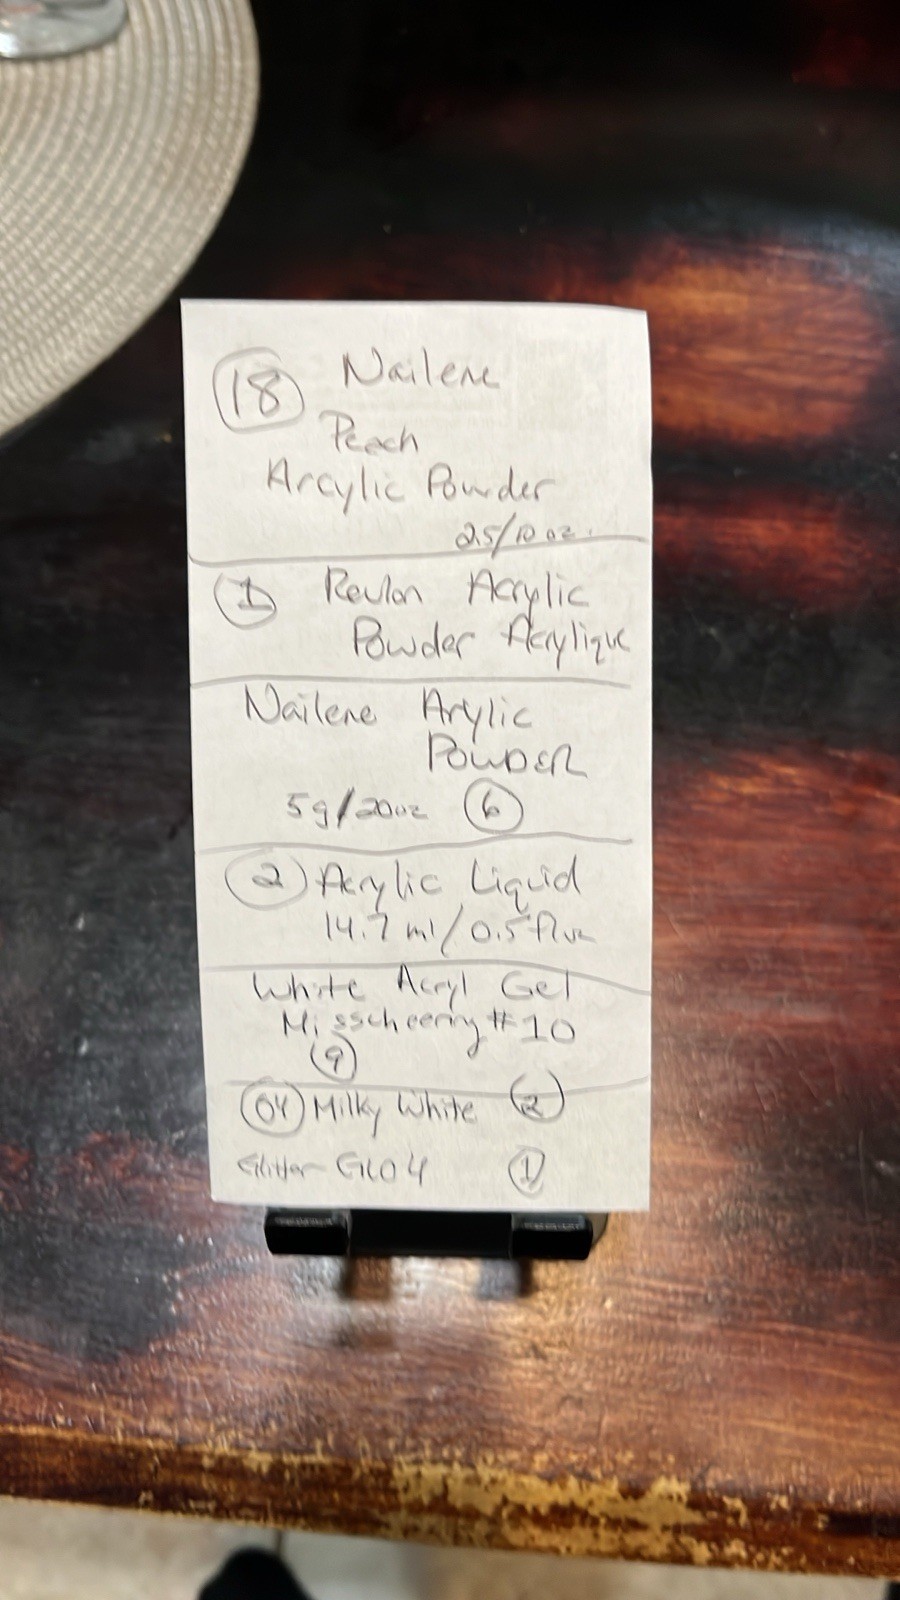 18 Nailene
Peach
Arcylic Powder
2.5/10 oz.
1 Revlon Acrylic
Powder Acrylique
Nailene Arylic
POWDER
5g/20oz 6
2 Acrylic Liquid
14.7 ml/0.5 fluz
White Acryl Gel
Misscheering #10
9
04 Milky White 2
Glitter GL04 1